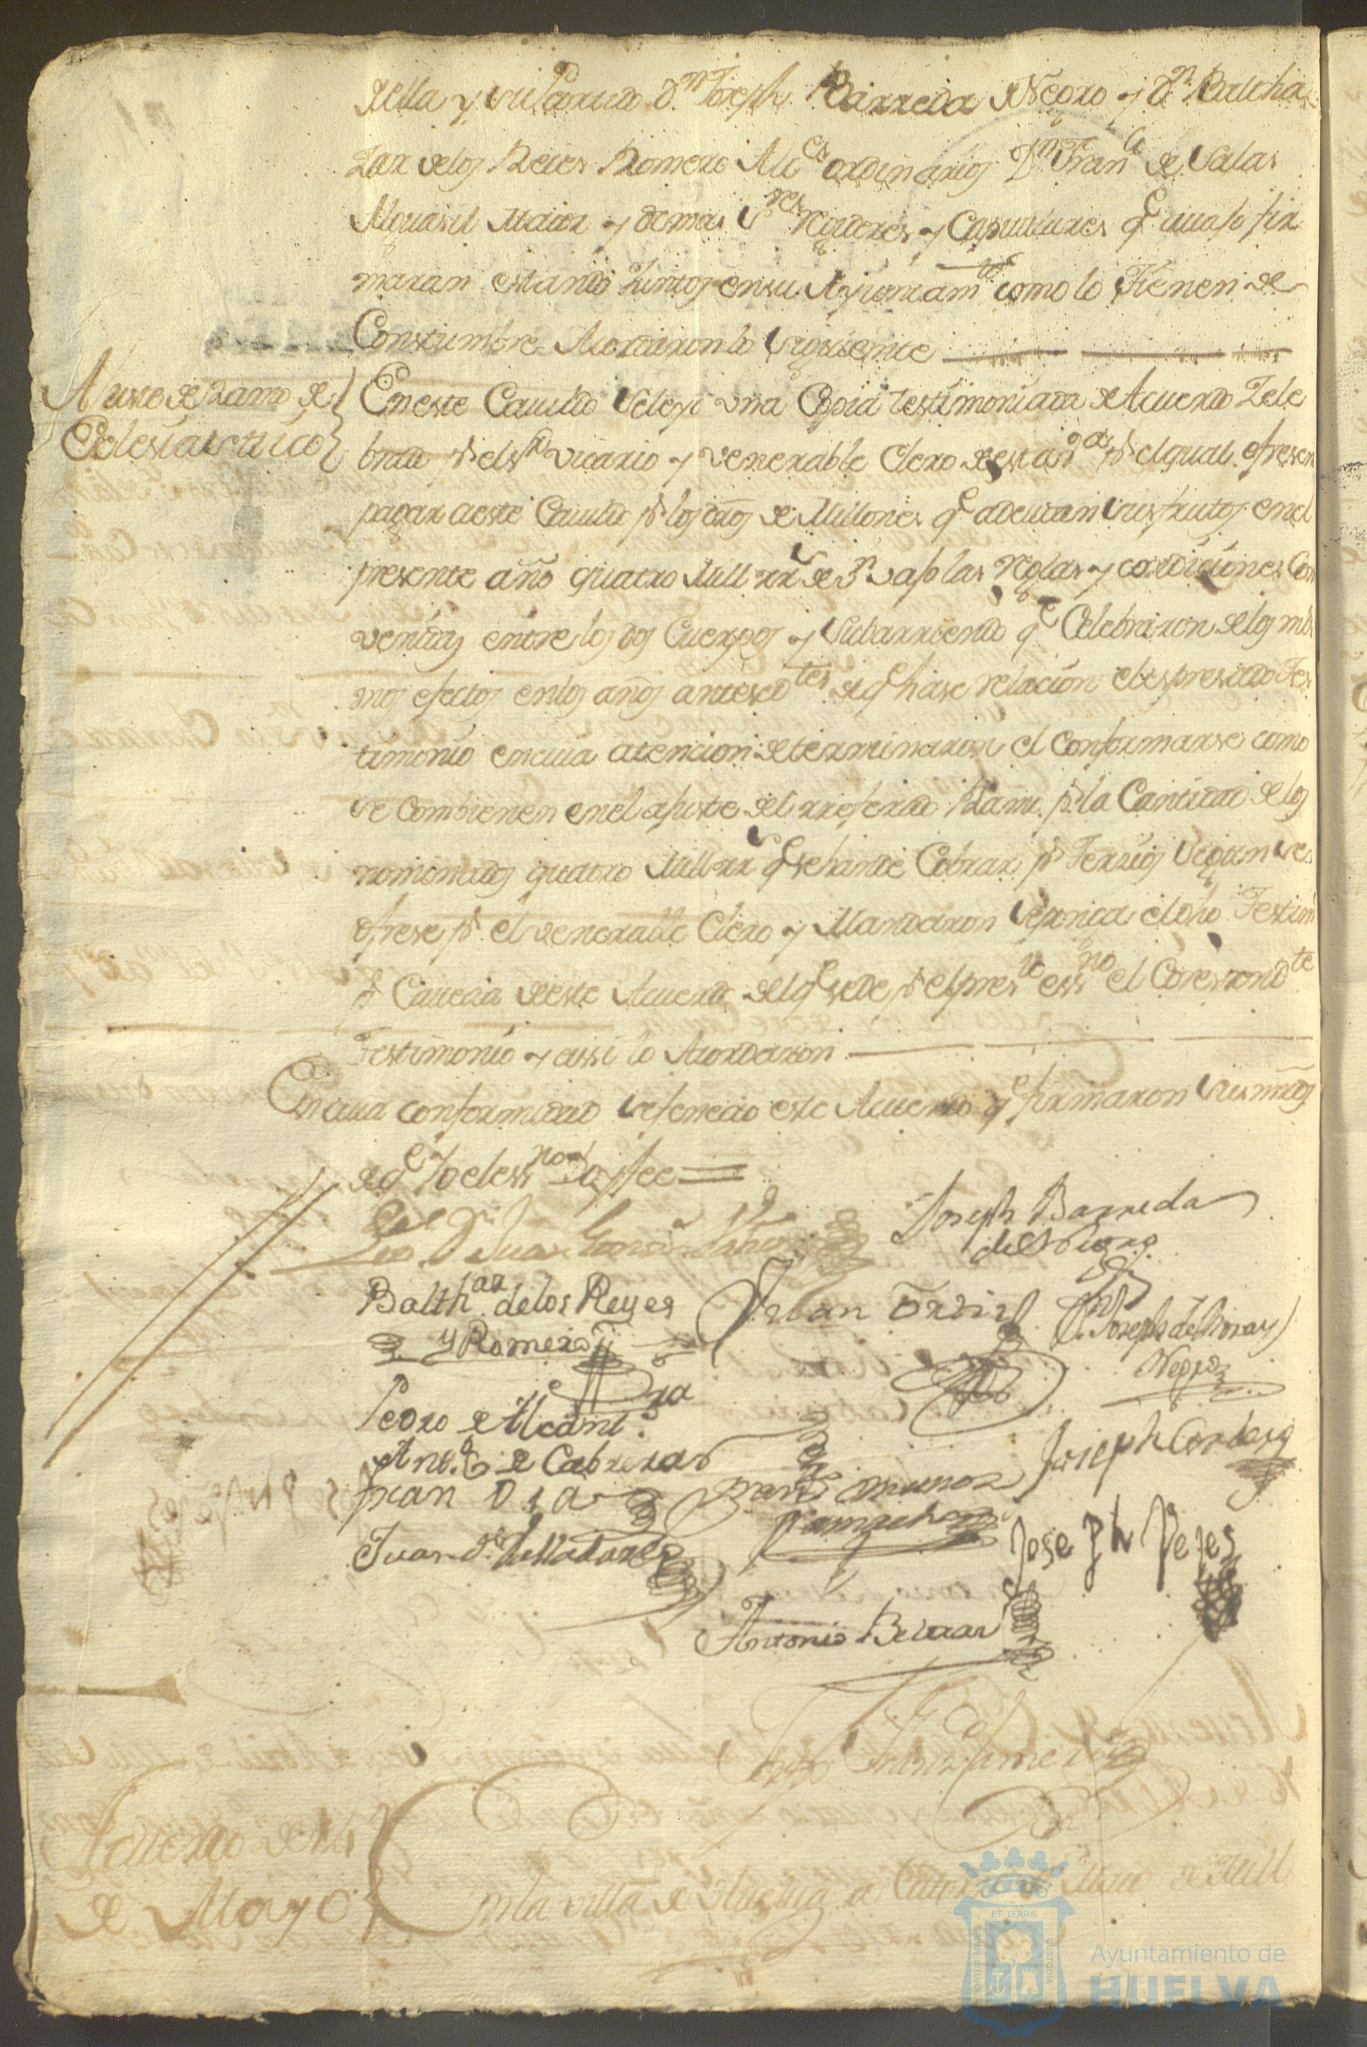 della y su Partido Dn Joseph Barreda de Negro y Dn Baltha
zar de los Reies Romero Alces ordinarios Dn Franco de Salas
Alguasil Maior y demas Sres Rexidores y Capitulares q avajo fir
maran estando Juntos en su Ayuntamto como lo tienen de
Constumbre Acordaron lo siguiente
Ajuste de Ramo de
Eclesiasticos
En este Cavildo se leyo una Copia testimoniada de Acuerdo Zele
brado pr el sr vicario y venerable Clero de esta pr el qual ofresen
pagar a este Cavildo pr los dros de Millones q adeudan sus frutos en el
presente año quatro Mill rrs de vn vajo las reglas y condiciones Con
venidas entre los dos Cuerpos y Subarriendo qe Celebraron de los mis
mos efectos en los años antesedtes de q hase relacion el espresado Tes
timonio en cuia atencion determinaron el conformarse como
se combienen en el ajuste del rreferido Ramo pr la Cantidad de los
nominados quatro Mill rrs q se han de Cobrar pr Terzios segun se
ofrese pr el venerable Clero y Mandaron se ponga el dho Testimo
pr Caveza de este Acuerdo del q se de pr el preste essno el Corespondte
Testimonio y assi lo Acordaron
En cuia conformidad se fenecio este Acuerdo q firmaron sus mrds
de qe Yo el essno doy fee
Joseph Barreda
de Negro
Balthar de los Reyes
y Romero
Joseph de
Negro
Pedro de Alcantra
Anto de Cabreras
Joseph Cordero
Juan Dias
Muñoz
Juan de Valladares
Joseph Reyes
Antonio Beltran
Acuerdo de 14
de Mayo
En la villa de Huelva a Catorze de Maio de Mill
Ayuntamiento de
HUELVA